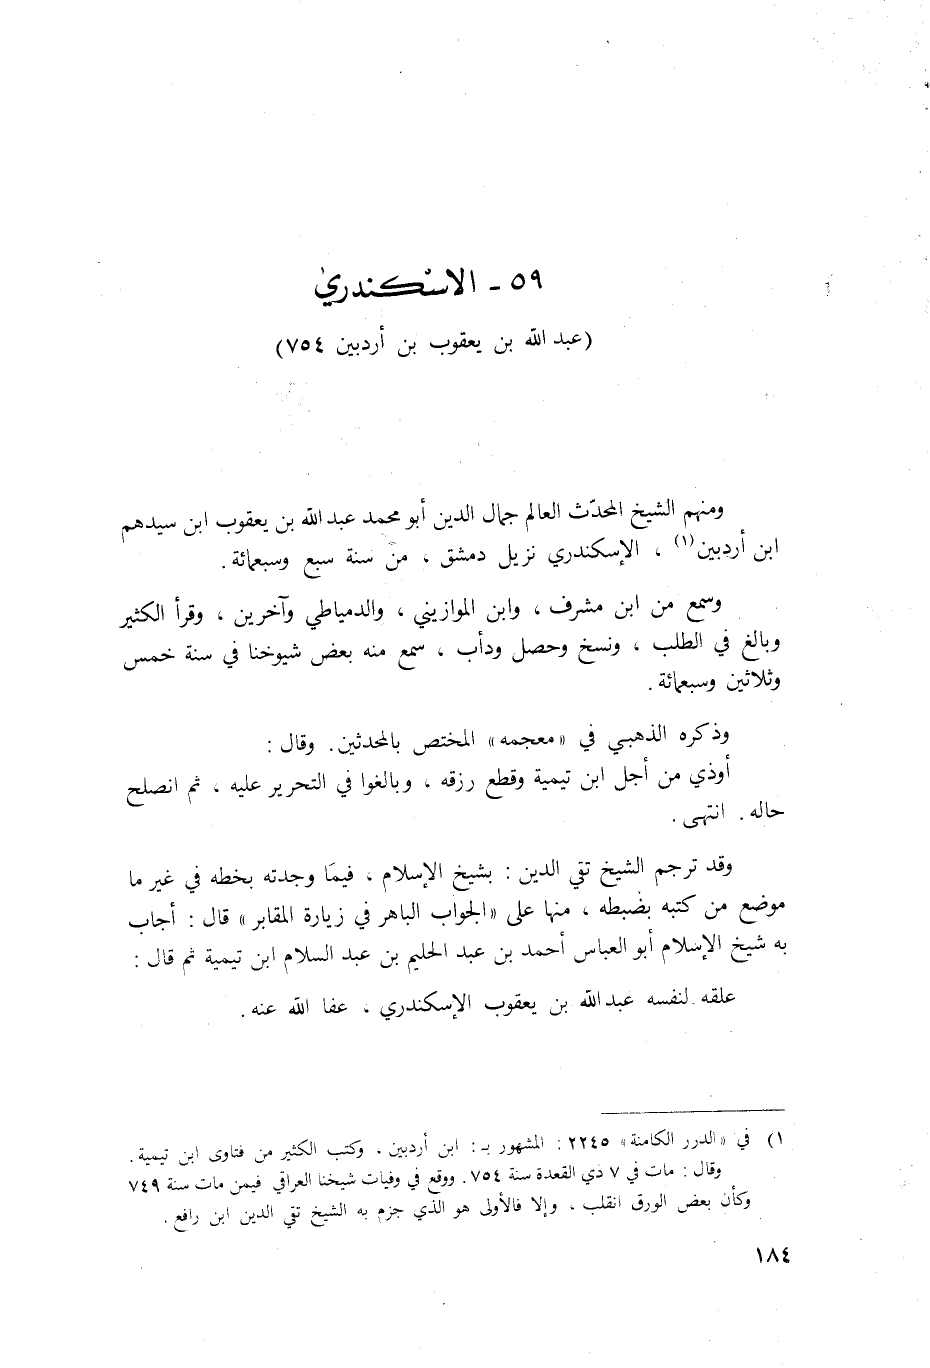 ٥٩ - الاسكندري
(عبد الله بن يعقوب بن أردبين ٧٥٤)
ومنهم الشيخ المحدّث العالم جمال الدين أبو محمد عبد الله بن يعقوب ابن سيدهم
ابن أردبين(١) ، الإسكندري نزيل دمشق ، من سنة سبع وسبعمائة .
وسمع من ابن مشرف ، وابن الموازيني ، والدمياطي وآخرين ، وقرأ الكثير
وبالغ في الطلب ، ونسخ وحصل ودأب ، سمع منه بعض شيوخنا في سنة خمس
وثلاثين وسبعمائة .
وذكره الذهبي في «معجمه» المختص بالمحدثين . وقال :
أوذي من أجل ابن تيمية وقطع رزقه ، وبالغوا في التحرير عليه ، ثم انصلح
حاله . انتهى .
وقد ترجم الشيخ تقي الدين : بشيخ الإسلام ، فيما وجدته بخطه في غير ما
موضع من كتبه بضبطه ، منها على «الجواب الباهر في زيارة المقابر» قال : أجاب
به شيخ الإسلام أبو العباس أحمد بن عبد الحليم بن عبد السلام ابن تيمية ثم قال :
علقه لنفسه عبد الله بن يعقوب الإسكندري ، عفا الله عنه .
١) في «الدرر الكامنة» ٢٢٤٥ : المشهور بـ : ابن أردبين ، وكتب الكثير من فتاوى ابن تيمية .
وقال : مات في ٧ ذي القعدة سنة ٧٥٤ . ووقع في وفيات شيخنا العراقي فيمن مات سنة ٧٤٩
وكأن بعض الورق انقلب ، وإلا فالأولى هو الذي جزم به الشيخ تقي الدين ابن رافع .
١٨٤